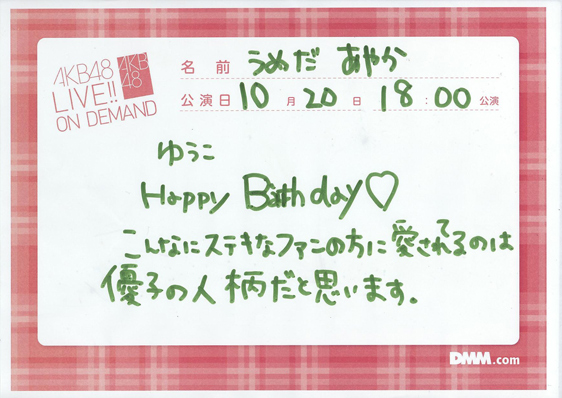 AKB48
LIVE!!
ON DEMAND
AKB
48
名前 うめだ あやか
公演日 10 月 20 日 18 : 00 公演
ゆうこ
Happy Birthday♡
こんなにステキなファンの方に愛されてるのは
優子の人柄だと思います。
DMM.com